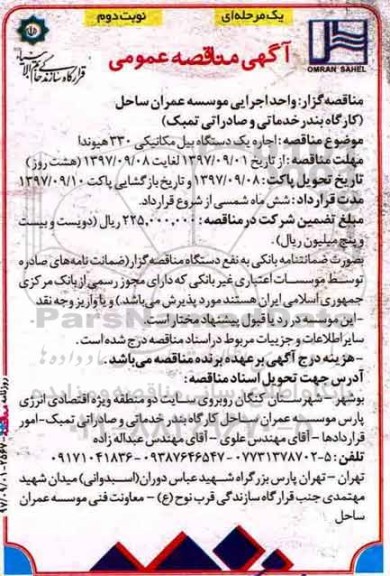 یک مرحله‌ای
نوبت دوم
آگهی مناقصه عمومی
OMRAN SAHEL
قرارگاه سازندگی خاتم الانبیاء
مناقصه گزار: واحد اجرایی موسسه عمران ساحل
(کارگاه بندر خدماتی و صادراتی تمبک)
موضوع مناقصه: اجاره یک دستگاه بیل مکانیکی ۳۳۰ هیوندا
مهلت مناقصه: از تاریخ ۱۳۹۷/۰۹/۰۱ لغایت ۱۳۹۷/۰۹/۰۸ (هشت روز)
تاریخ تحویل پاکت: ۱۳۹۷/۰۹/۰۸ و تاریخ بازگشایی پاکت ۱۳۹۷/۰۹/۱۰
مدت قرارداد: شش ماه شمسی از شروع قرارداد.
مبلغ تضمین شرکت در مناقصه: ۲۲۵,۰۰۰,۰۰۰ ریال (دویست و بیست
و پنج میلیون ریال).
بصورت ضمانتنامه بانکی به نفع دستگاه مناقصه گزار (ضمانت نامه‌های صادره
توسط موسسات اعتباری غیر بانکی که دارای مجوز رسمی از بانک مرکزی
جمهوری اسلامی ایران هستند مورد پذیرش می‌باشد.) و یا واریز وجه نقد
-این موسسه در رد یا قبول پیشنهاد مختار است.
سایر اطلاعات و جزییات مربوط در اسناد مناقصه درج شده است.
-هزینه درج آگهی بر عهده برنده مناقصه می‌باشد.
آدرس جهت تحویل اسناد مناقصه:
بوشهر - شهرستان کنگان روبروی سایت دو منطقه ویژه اقتصادی انرژی
پارس موسسه عمران ساحل کارگاه بندر خدماتی و صادراتی تمبک-امور
قراردادها - آقای مهندس علوی - آقای مهندس عبداله زاده
تلفن: ۵-۰۷۷۳۱۳۷۸۷۰۲ -۰۹۳۸۷۶۴۶۵۴۷ -۰۹۱۷۱۰۴۱۸۳۶
تهران - تهران پارس بزرگراه شهید عباس دوران (اسبدوانی) میدان شهید
مهتمدی جنب قرارگاه سازندگی قرب نوح (ع) - معاونت فنی موسسه عمران
ساحل